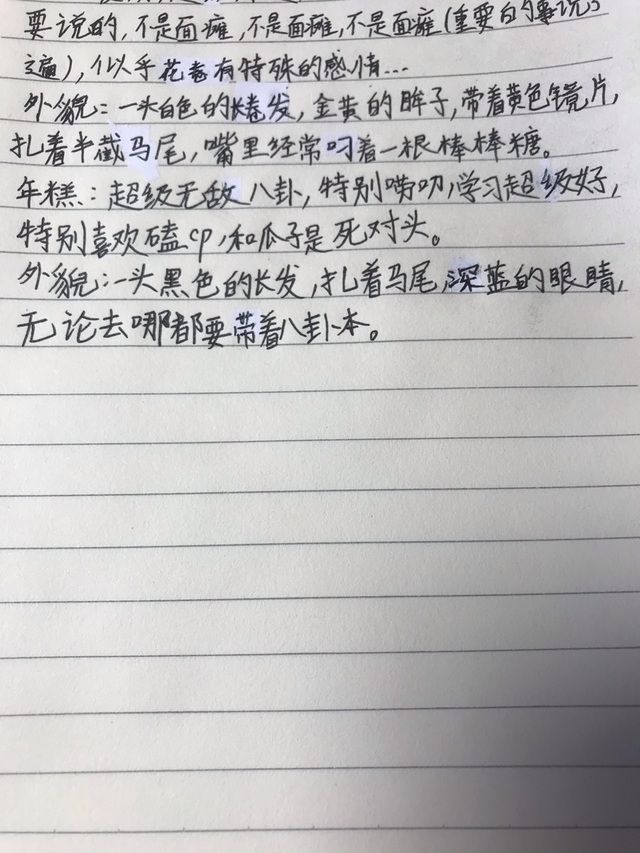 要说的,不是面瘫,不是面瘫,不是面瘫(重要的事说3
遍),似乎花卷有特殊的感情...
外貌:一头白色的长卷发,金黄的眸子,带着黄色镜片,
扎着半截马尾,嘴里经常叼着一根棒棒糖。
年糕:超级无敌八卦,特别唠叨,学习超级好,
特别喜欢磕cp,和瓜子是死对头。
外貌:一头黑色的长发,扎着马尾,深蓝的眼睛,
无论去哪都要带着八卦本。